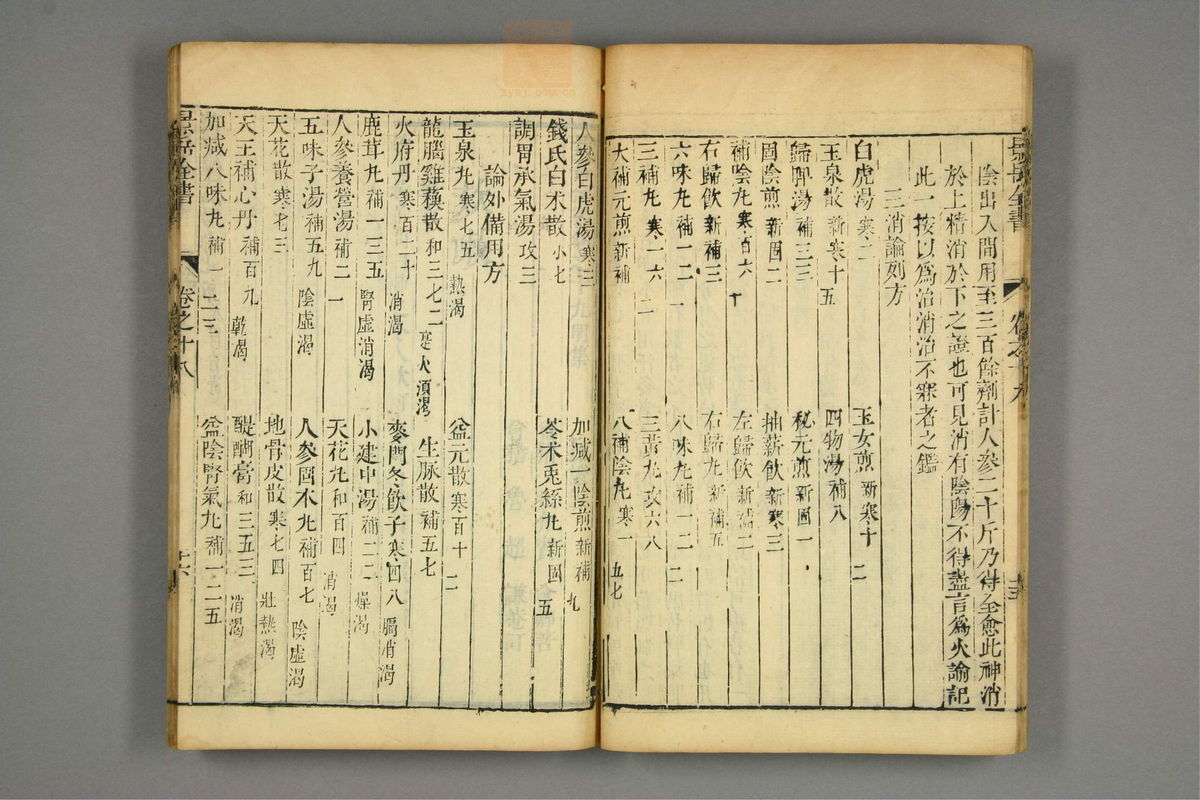 陰出入間用至三百餘劑計人參二十斤乃得全愈此神消
於上精消於下之證也可見消有陰陽不得盡言爲火諭記
此一按以爲治消治不寐者之鑑
三消論列方
白虎湯 寒二 玉女煎 新寒十二
玉泉散 新寒十五 四物湯 補八
歸脾湯 補三三 秘元煎 新固一
固陰煎 新固二 抽薪飲 新寒三
補陰丸 寒百六十 左歸飲 新補二
右歸飲 新補三 右歸丸 新補五
六味丸 補一二一 八味丸 補一二二
三補丸 寒一六二 三黃丸 攻六八
大補元煎 新補一 八補陰丸 寒一五七
人參白虎湯 寒三 加減一陰煎 新補九
錢氏白术散 小七 苓术兎絲丸 新固五
調胃承氣湯 攻三
論外備用方
玉泉丸 寒七五 熱渴 益元散 寒百十二
龍腦雞蘓散 和三七二 火渴 生脉散 補五七
火府丹 寒百二十 消渴 麥門冬飲子 寒四八 膈消渴
鹿茸丸 補一三五 腎虛消渴 小建中湯 補二二 燥渴
人參養營湯 補二一 天花丸 和百四 消渴
五味子湯 補五九 陰虛渴 人參固本丸 補百七 陰虛渴
天花散 寒七三 地骨皮散 寒七四 壯熱渴
天王補心丹 補百九 乾渴 醍醐膏 和三五三 消渴
加減八味丸 補一二三 益陰腎氣丸 補一二五
景岳全書 卷之十八 十六